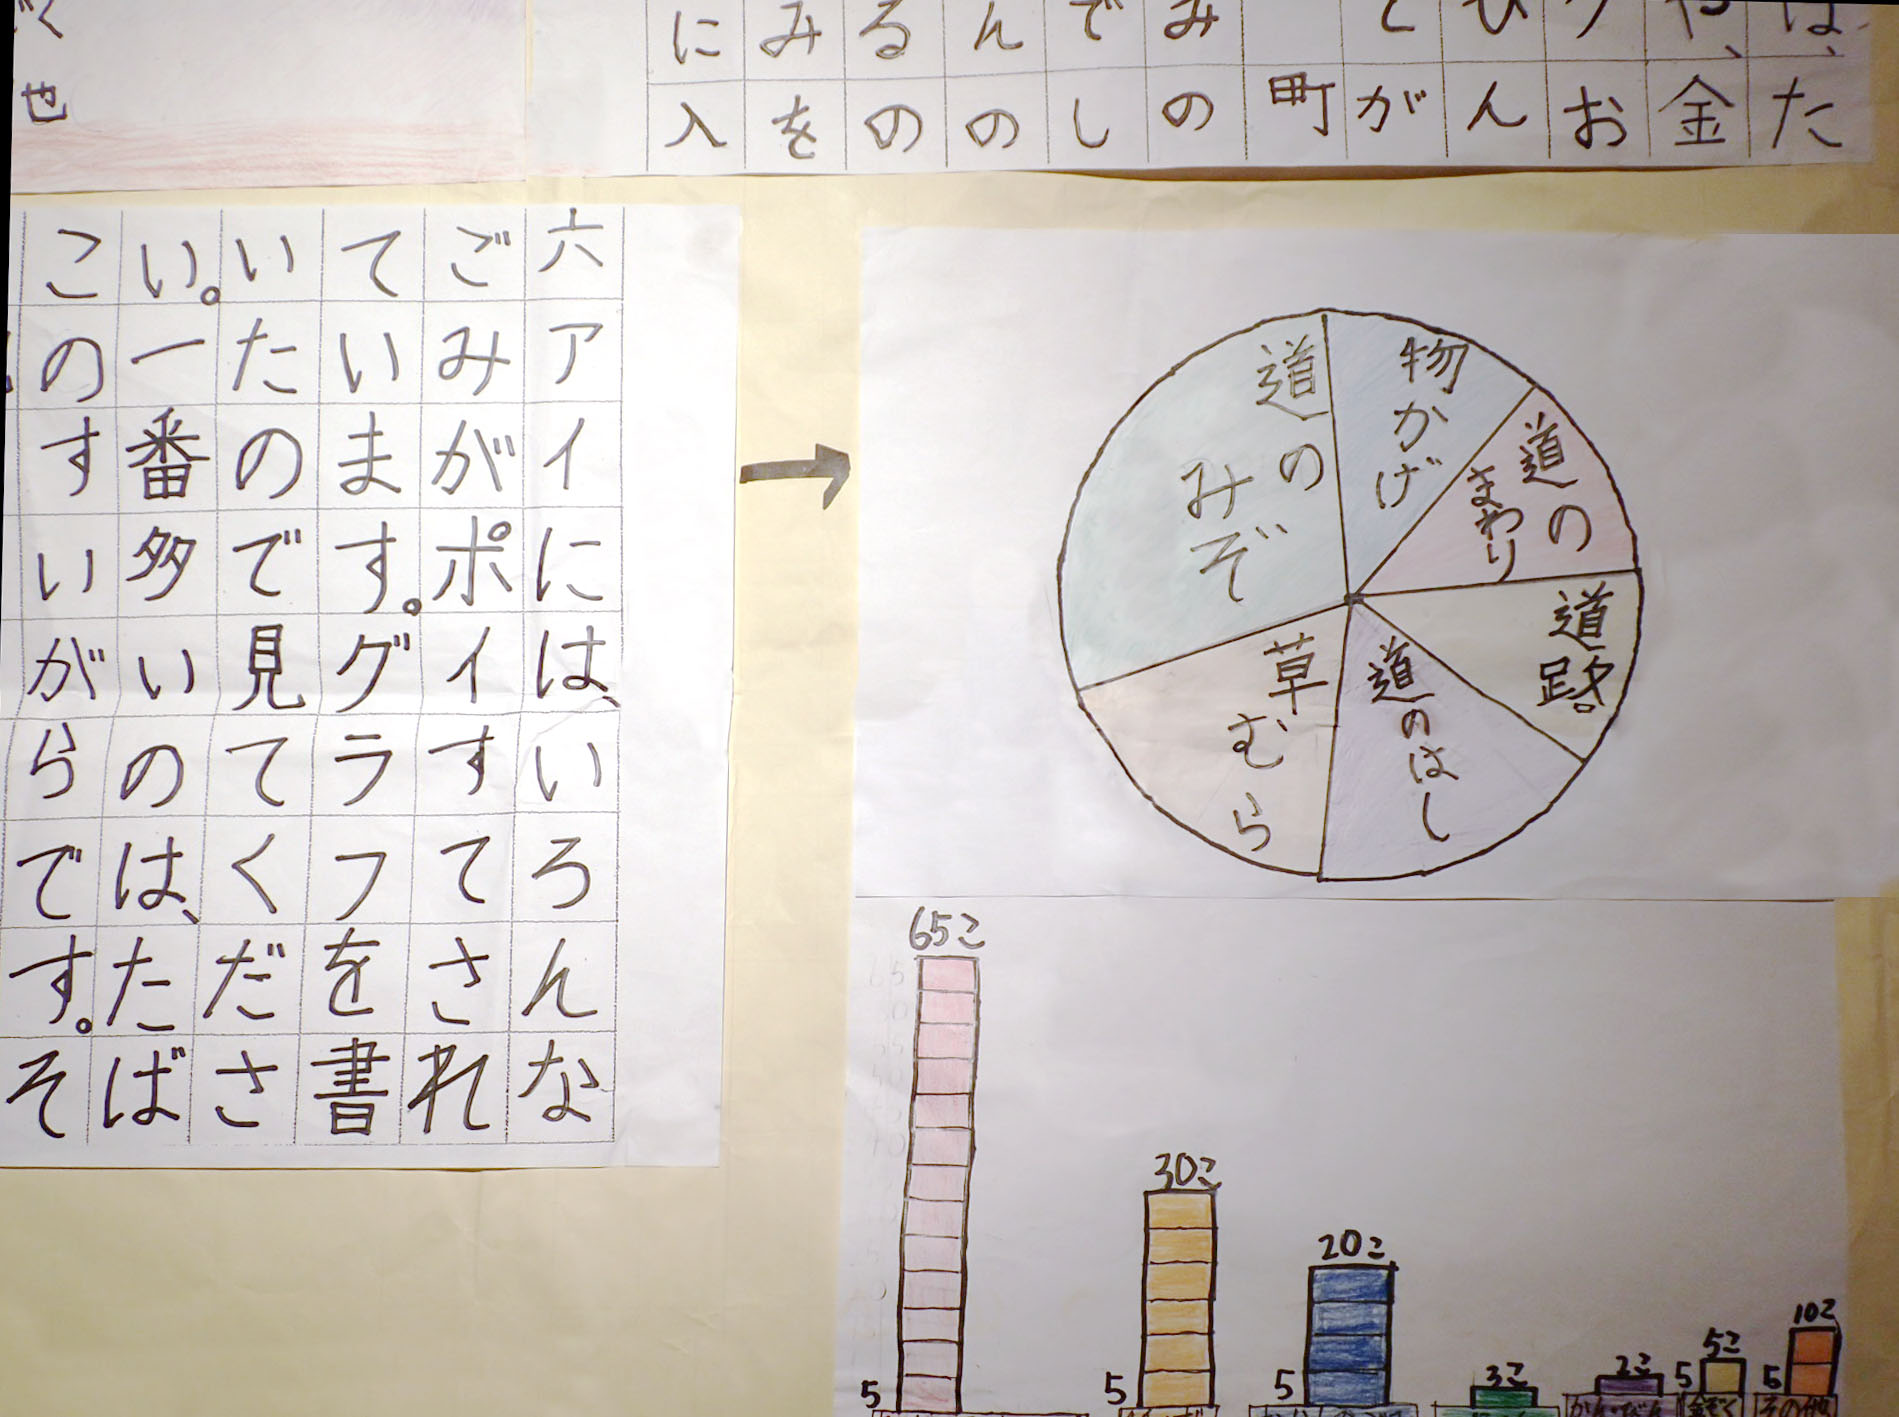 は、た
や、金
クお
ひん
とが
町
みの
でし
んの
るの
みを
に入
也
六アイには、いろんな
ごみがポイすてされ
ています。グラフを書
いたので見てくださ
い。一番多いのは、たば
このすいがらです。そ
物かげ
道のまわり
道路。
道のはし
草むら
道のみぞ
65こ
30こ
20こ
3こ
2こ
5こ
10こ
5
5
5
5
5
かん・びん
金ぞく
その他